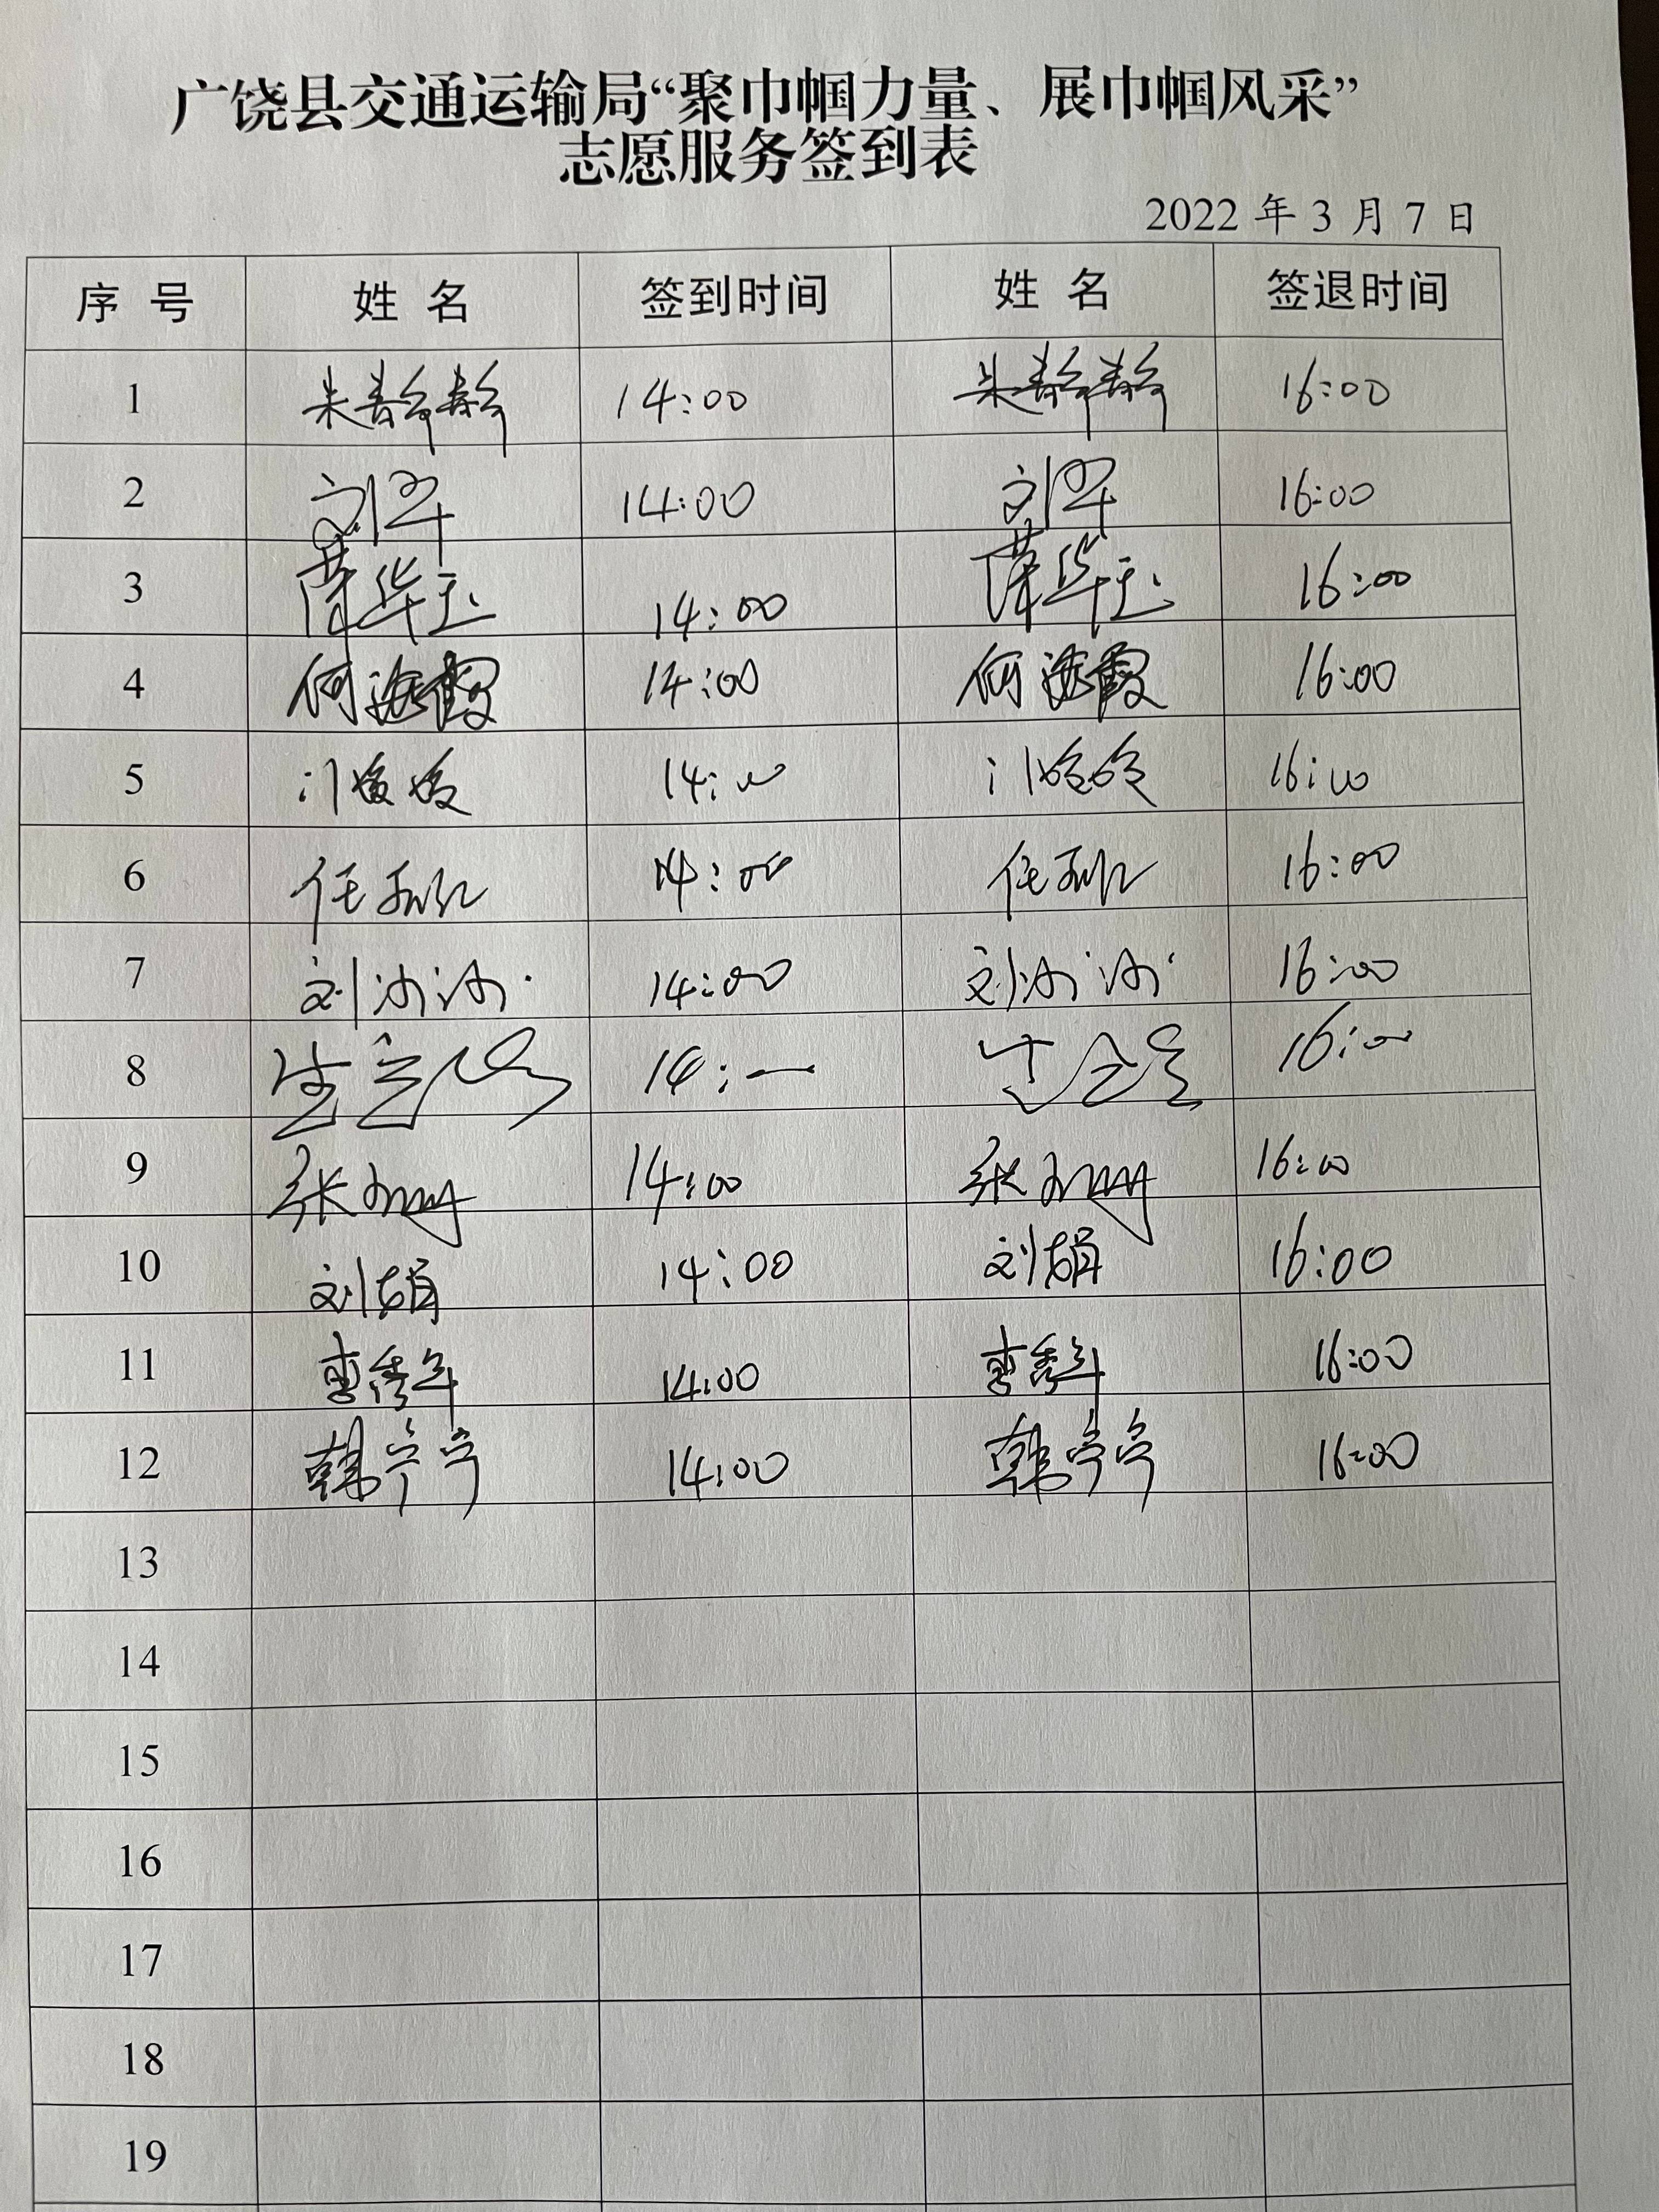 广饶县交通运输局“聚巾帼力量、展巾帼风采”
志愿服务签到表
2022 年 3 月 7 日
序 号 姓 名 签到时间 姓 名 签退时间
1 14:00 16:00
2 刘军 14:00 刘军 16:00
3 薛华玉 14:00 薛华玉 16:00
4 何海霞 14:00 何海霞 16:00
5 14:00 16:00
6 任 14:00 任 16:00
7 刘冰冰 14:00 刘冰冰 16:00
8 14: 16:00
9 张 14:00 张 16:00
10 刘娟 14:00 刘娟 16:00
11 14:00 16:00
12 韩宁宁 14:00 韩宁宁 16:00
13
14
15
16
17
18
19